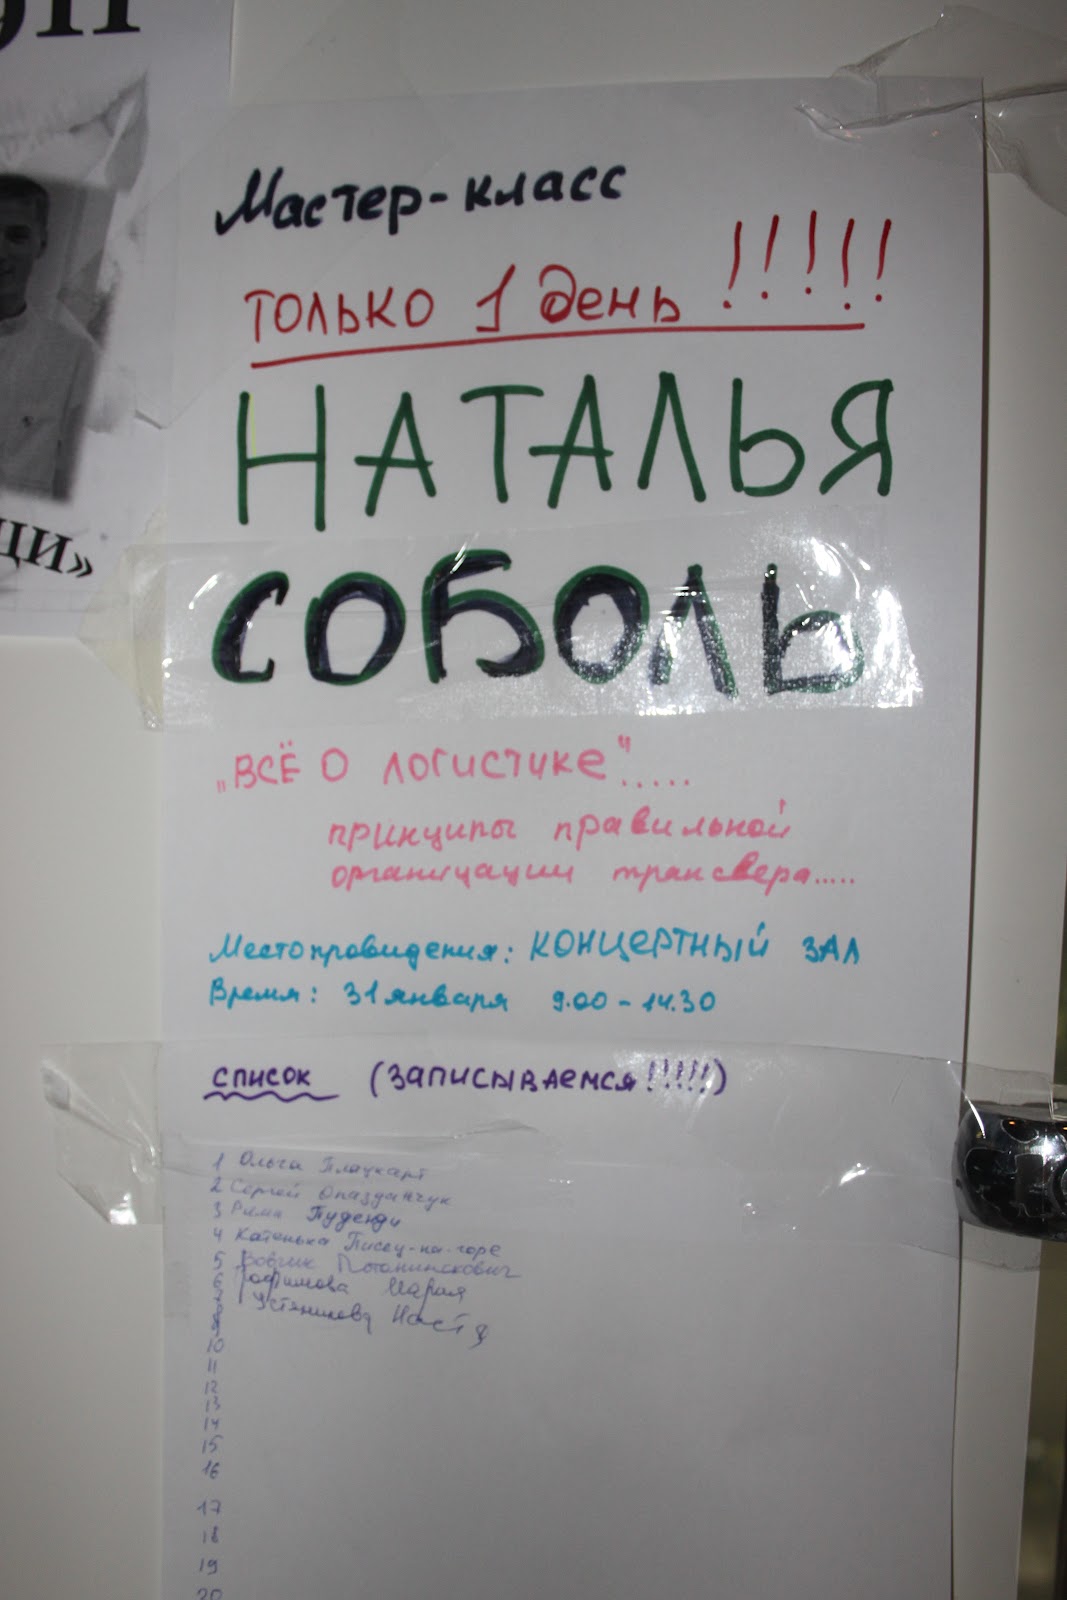 ЦИ»
Мастер-класс
только 1 день !!!!!
НАТАЛЬЯ
СОБОЛЬ
„ВСЁ О ЛОГИСТИКЕ".....
принципы правильной
организации трансвера.....
Место провидения: КОНЦЕРТНЫЙ ЗАЛ
Время: 31 января 9.00-14.30
СПИСОК (ЗАПИСЫВАЕМСЯ!!!!!)
1 Ольга Плацкарт
2 Сергей Опазданчук
3 Рима Пуденди
4 Катенька Писец-на-горе
5 Вовчик
6 Мария
7 Настя
8
9
10
11
12
13
14
15
16
17
18
19
20